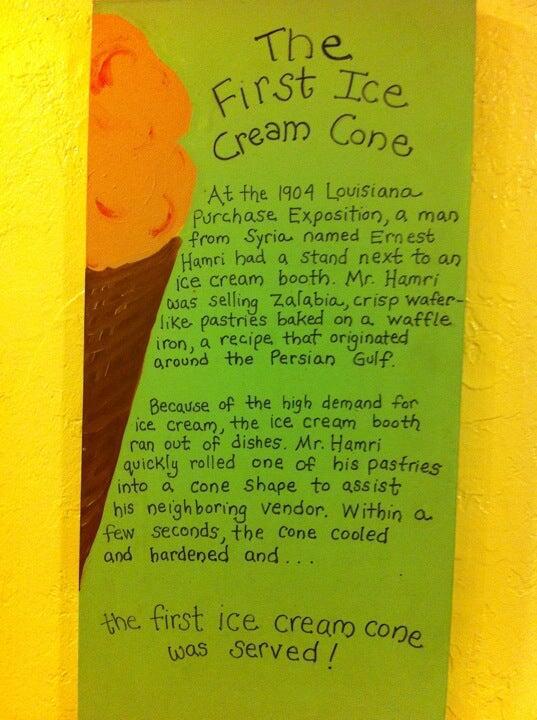 The
First Ice
Cream Cone
At the 1904 Louisiana
Purchase Exposition, a man
from Syria named Ernest
Hamri had a stand next to an
ice cream booth. Mr. Hamri
was selling Zalabia, crisp wafer-
like pastries baked on a waffle
iron, a recipe that originated
around the Persian Gulf.
Because of the high demand for
ice cream, the ice cream booth
ran out of dishes. Mr. Hamri
quickly rolled one of his pastries
into a cone shape to assist
his neighboring vendor. Within a
few seconds, the cone cooled
and hardened and...
the first ice cream cone
was served!